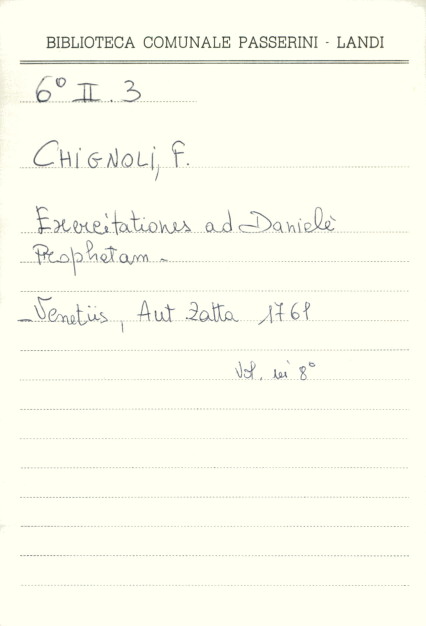 BIBLIOTECA COMUNALE PASSERINI - LANDI
6° II. 3
CHIGNOLI, F.
Exercitationes ad Danielè
Prophetam -
- Venetiis, Aut Zatta 1761
Vol. in 8°